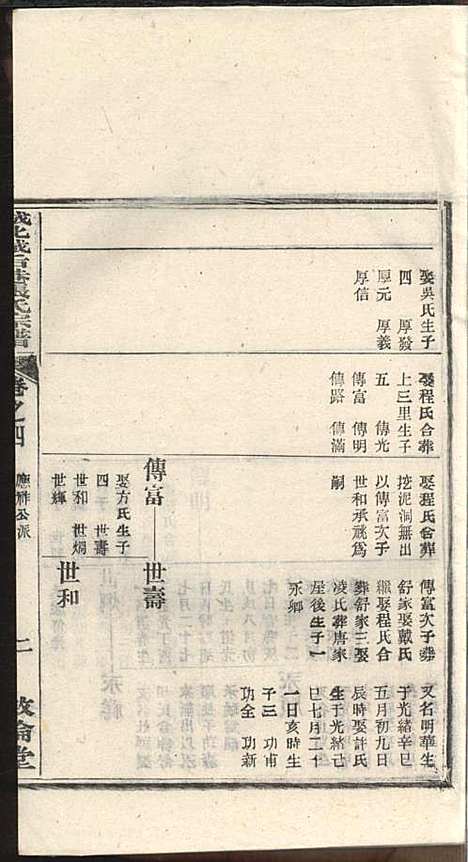 娶吳氏生子
四　厚發
厚元　厚義
厚信
娶程氏合葬
上三里生子
五　傳光
傳富　傳明
傳路　傳滿
娶程氏合葬
挖泥洞無出
以傳富次子
世和承祧爲
嗣
傳富
娶方氏生子
四　世壽
世和　世炯
世輝
世壽
又名明華生
于光緒辛巳
五月初九日
辰時娶許氏
生于光緒己
巳七月二十
一日亥時生
子三　功甫
功全　功新
世和
傳富次子葬
舒家娶戴氏
繼娶程氏合
葬舒家三娶
凌氏葬唐家
座後生子一
永鄉
裴氏宗譜
卷之四
應祥公派
二
敦倫堂